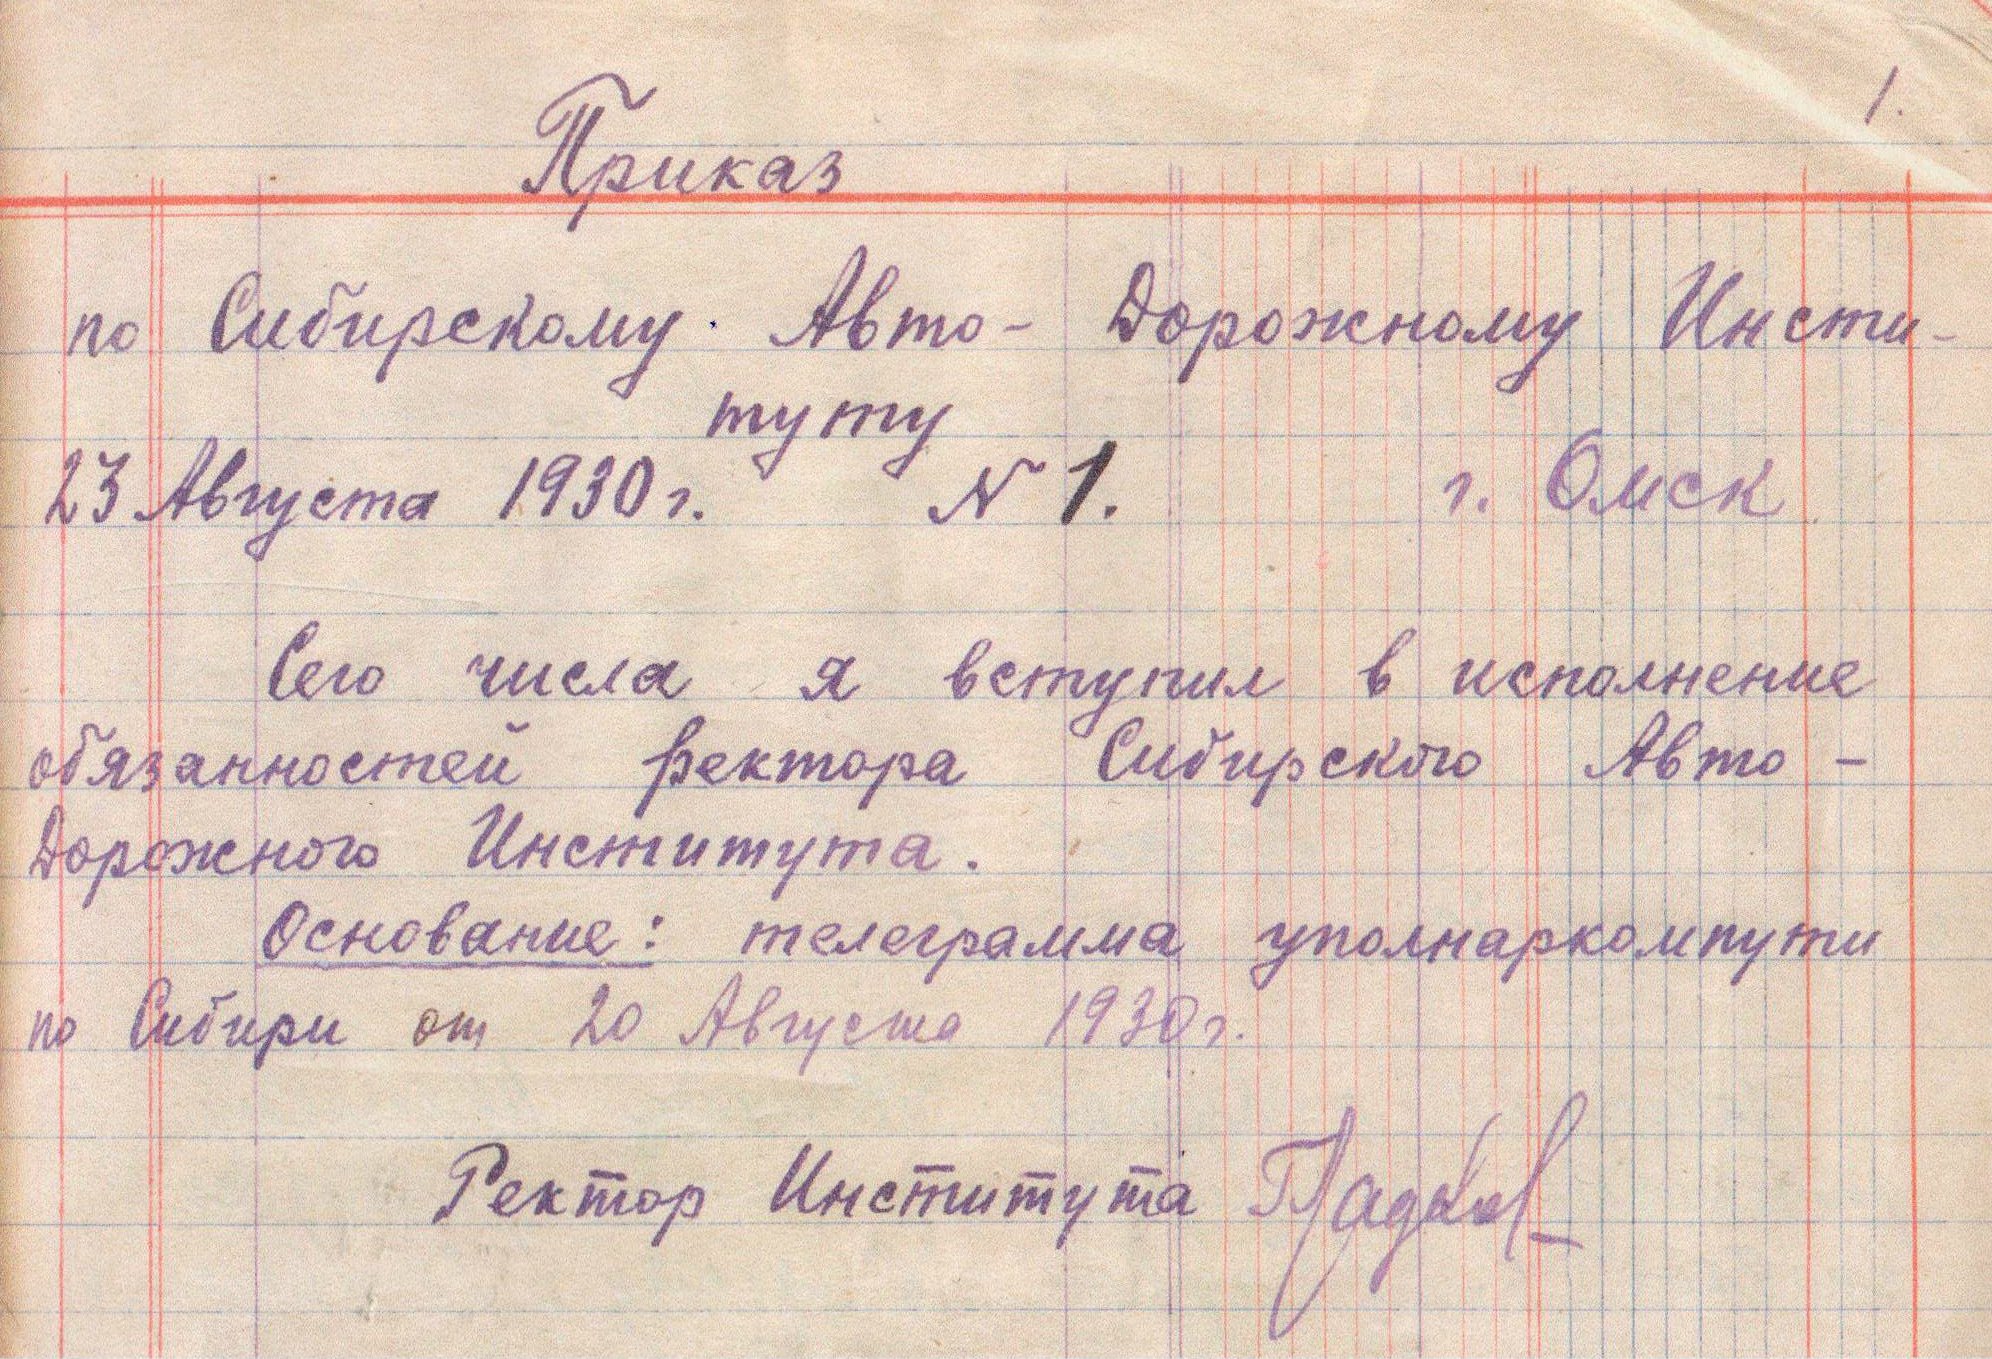 1.
Приказ
по Сибирскому Авто- Дорожному Инсти-
туту
23 Августа 1930 г. N 1. г. Омск
Сего числа я вступил в исполнение
обязанностей ректора Сибирского Авто-
Дорожного Института.
Основание: телеграмма уполнаркомпути
по Сибири от 20 Августа 1930 г.
Ректор Института